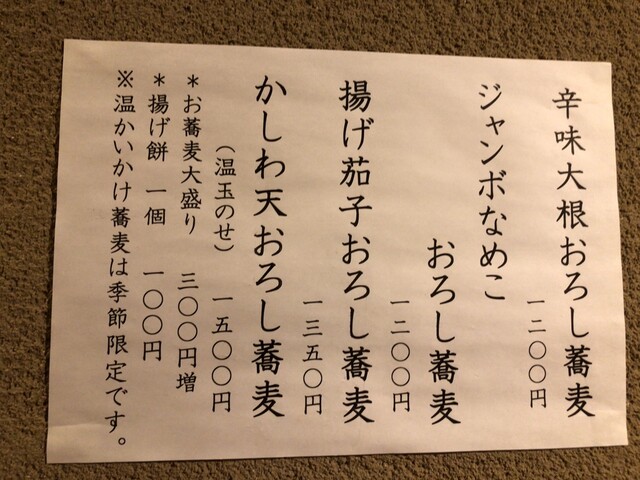 辛味大根おろし蕎麦
一二〇〇円
ジャンボなめこ
おろし蕎麦
一二〇〇円
揚げ茄子おろし蕎麦
一三五〇円
かしわ天おろし蕎麦
（温玉のせ）　一五〇〇円
＊お蕎麦大盛り　三〇〇円増
＊揚げ餅　一個　一〇〇円
※温かいかけ蕎麦は季節限定です。